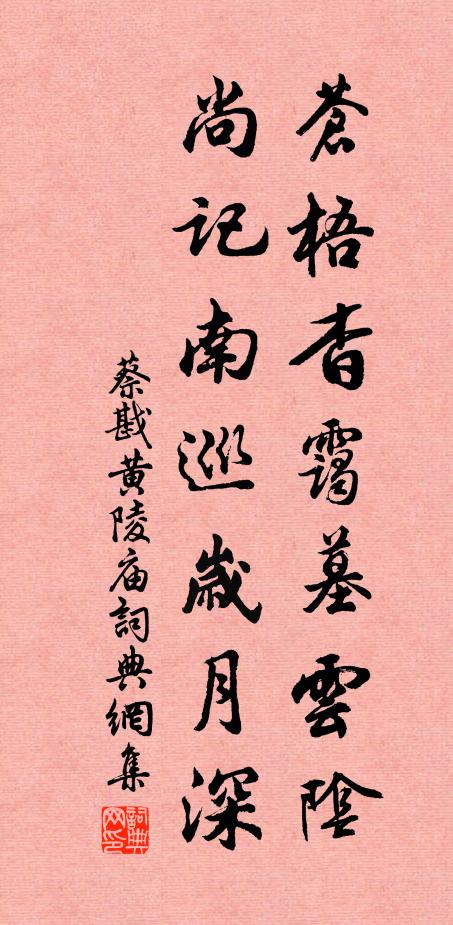 蒼梧杳靄墓雲陰
尚記南巡歲月深
蔡戡黄陵庙詞典網集
詞典网印